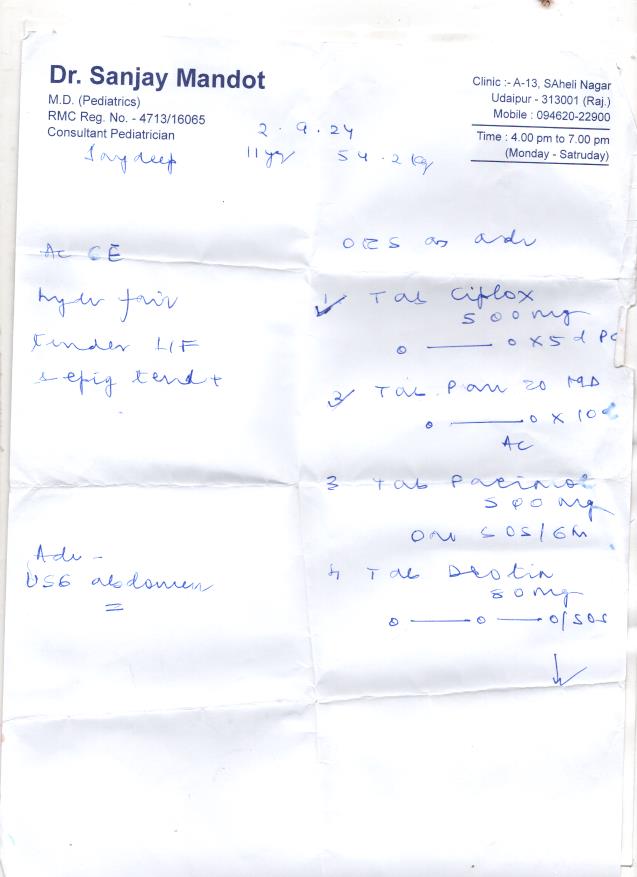 Dr. Sanjay Mandot
M.D. (Pediatrics)
RMC Reg. No. - 4713/16065
Consultant Pediatrician
Clinic :- A-13, SAheli Nagar
Udaipur - 313001 (Raj.)
Mobile : 094620-22900
Time : 4.00 pm to 7.00 pm
(Monday - Satruday)
2.9.24
Jaydeep 11yr 54.2kg
Ac GE
hydr fair
tender LIF
epig tend +
Adv -
USG abdomen
ORS as adv
1 Tab Ciplox
500mg
0 — 0 x 5d PC
2 Tab. Pan 20 MD
0 — 0 x 10d
AC
3 Tab Pacimol
500mg
One SOS/6h
4 Tab Drotin
80mg
0 — 0 — 0/SOS